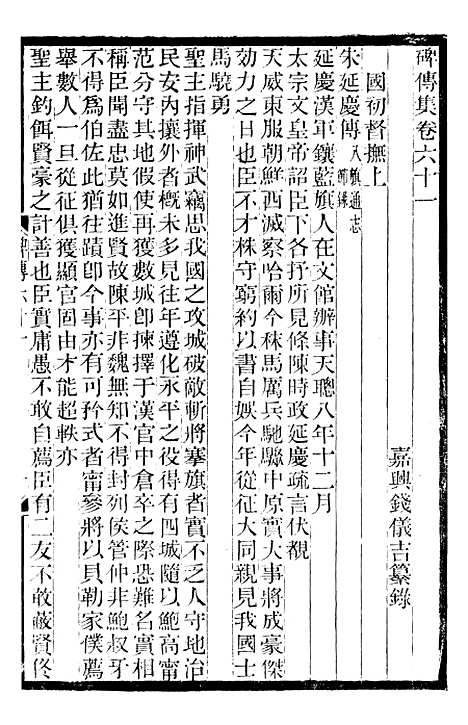 碑傳集卷六十一
嘉興錢儀吉纂錄
國初督撫上
朱延慶傳八旗通志
節錄
延慶漢軍鑲藍旗人在文館辦事天聰八年十二月
太宗文皇帝詔臣下各抒所見條陳時政延慶疏言伏覩
天威東服朝鮮西滅察哈爾今秣馬厲兵馳驅中原實大事將成豪傑
効力之日也臣不才株守窮約以書自娛今年從征大同親見我國士
馬驍勇
聖主指揮神武竊思我國之攻城破敵斬將搴旗者實不乏人守地治
民安內攘外者槪未多見往年遵化永平之役得有四城隨以鮑高甯
范分守其地假使再得數城卽揀擇于漢官中倉卒之際恐難名實相
稱臣聞盡忠莫如進賢故陳平非魏無知不得封列侯管仲非鮑叔牙
不得爲伯佐此猶往蹟卽今事亦有可矜式者甯叅將以貝勒家僕薦
舉數人一旦從征俱獲顯官固由才能超軼亦
聖主釣餌賢豪之計善也臣實庸愚不敢自薦臣有二友不敢蔽賢佟
碑傳六十一